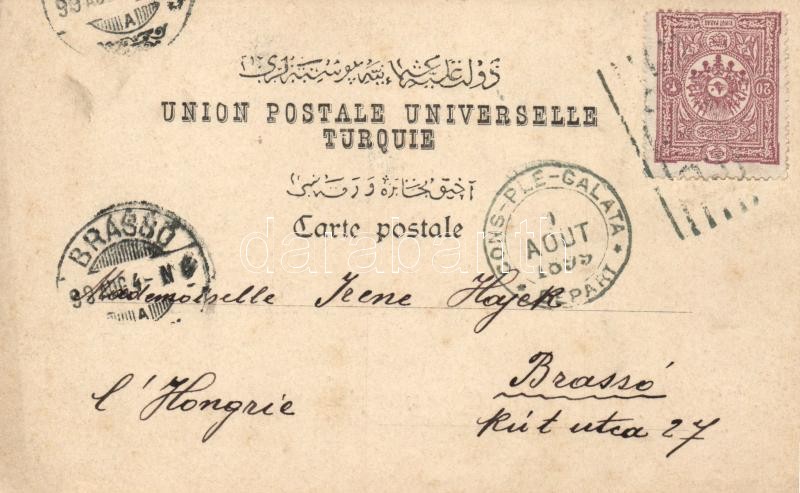 99 AUG
A
دولت عليه عثمانيه پوسته لرى
UNION POSTALE UNIVERSELLE
TURQUIE
آچيق مخابره ورقه سى
Carte postale
20
CONS-PLE-GALATA
1
AOUT
1899
DEPART
BRASSÓ
99 AUG 4 - N
A
Mademoiselle Irene Hajek
Brassó
l'Hongrie
Kút utca 27
darabanth